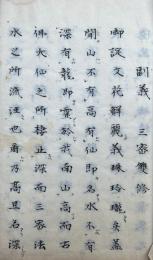 副義　三密雙修
御說文花鮮麗義珠玲瓏矣蓋
聞山不有高有仙即名水不有
深有龍即靈於南山高而石
佛大仙之所棲止深而三密法
水之所流注也爾乃高且名深